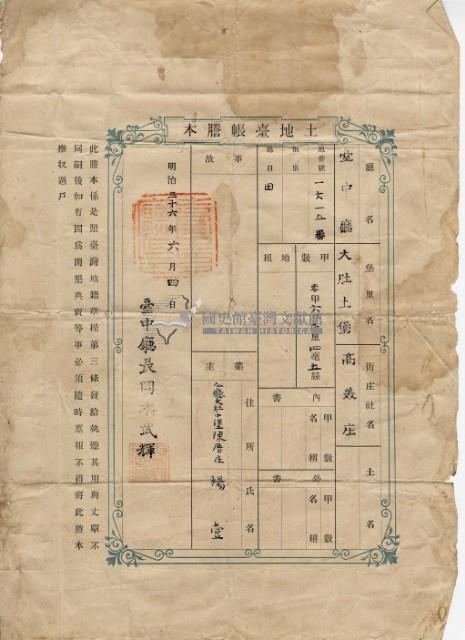 土地臺帳謄本
廳名
臺中廳
堡里名
大肚上堡
街庄社名
高美庄
土名
地番號
一六一五番
地目
田
甲數
零甲六
毫五絲
地租
內書
甲數
名稱
外書
甲數
名稱
事故
業主
住所
大肚中堡陳厝庄
氏名
楊壹
明治三十六年六月四日
臺中廳長岡本武輝
此謄本係是照臺灣地籍章程第三條發給就憑其用與丈單不
同嗣後如有因爲開墾典賣等事必須隨時稟報不得將此謄本
推收過戶
國史館臺灣文獻館
TAIWAN HISTORICA